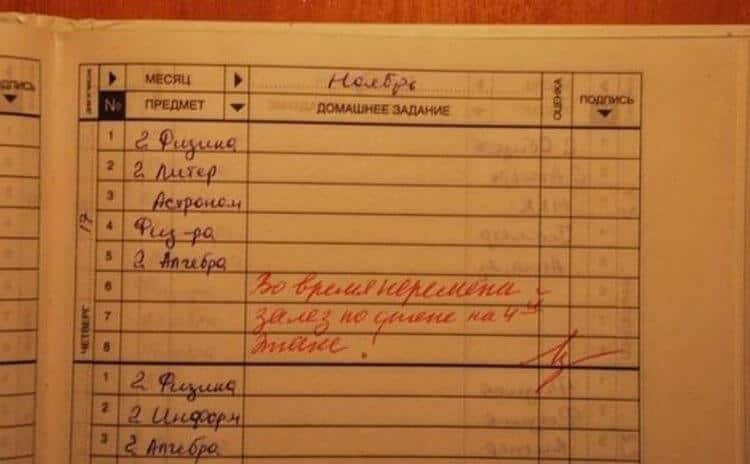 ДПИСЬ
МЕСЯЦ Ноябрь ОЦЕНКА ПОДПИСЬ
№ ПРЕДМЕТ ДОМАШНЕЕ ЗАДАНИЕ
17
ЧЕТВЕРГ
1 2 Физика
2 2 Литер
3 Астроном
4 Физ-ра
5 2 Алгебра
6 Во время перемены
7 залез по стене на 4ый
8 этаж.
1 2 Физика
2 2 Информ
3 2 Алгебра